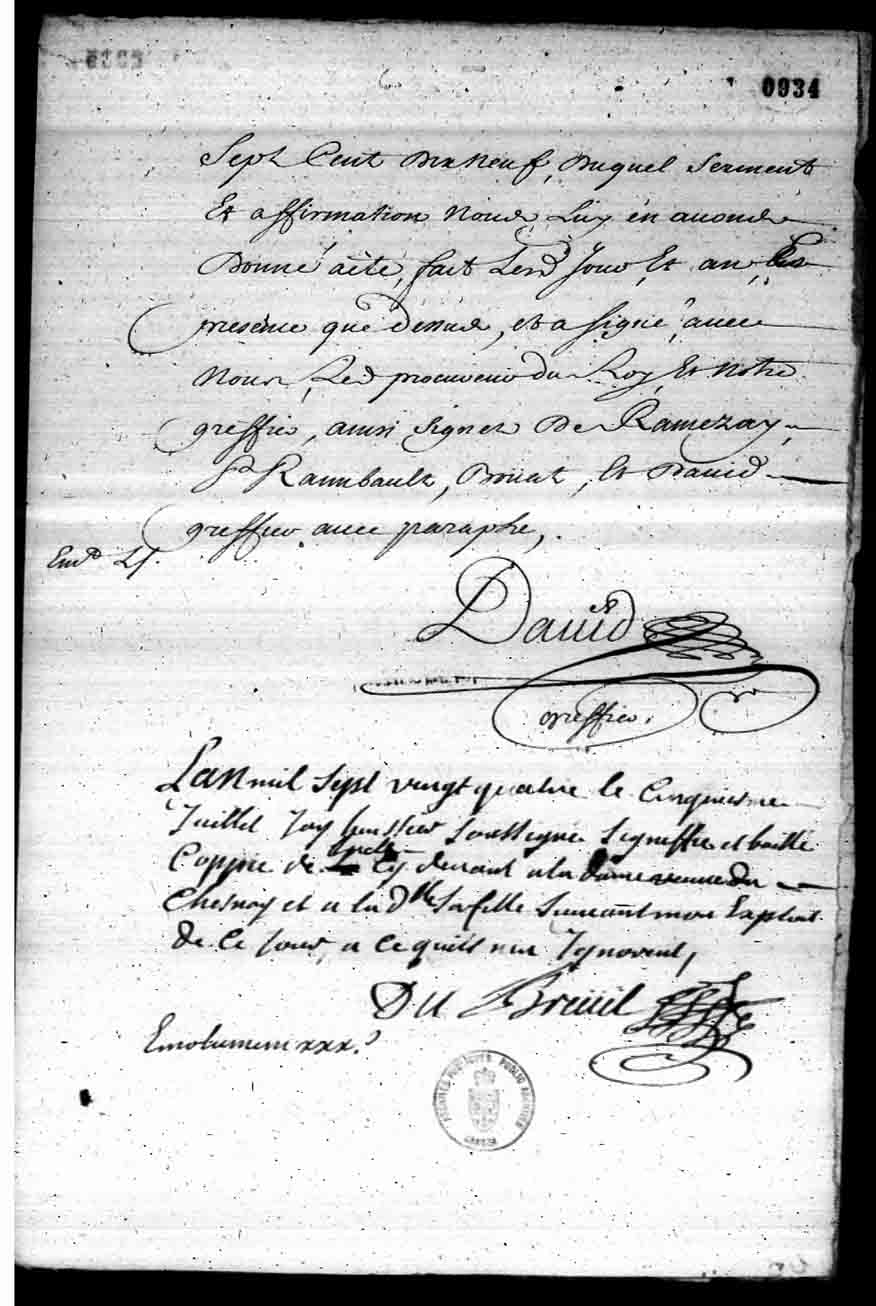 0934
Sept Cent Dix Neuf, Duquel Serment
Et affirmation Nous Luy en avons
Donné acte, fait Lesd. Jour Et an, Es
presence que dessus, et a signé avec
Nous Led procureur du Roy, Et Notre
greffier, ainsi Signez De Ramezay,
Raimbault, Boüat, Et David
greffier avec paraphe,
David
greffier.
Lan mil sept vingt quatre le Cinquiesme
Juillet Jay huissier soussigné signiffié et baillé
Coppie de Cy devant a la dame veuve du
Chesnay et a la dlle sa fille Suivant mon Exploit
de Ce Jour, a ce quils nen Ignorent,
Du Breüil
Emolument xxx s
ARCHIVES PUBLIQUES PUBLIC ARCHIVES
CANADA